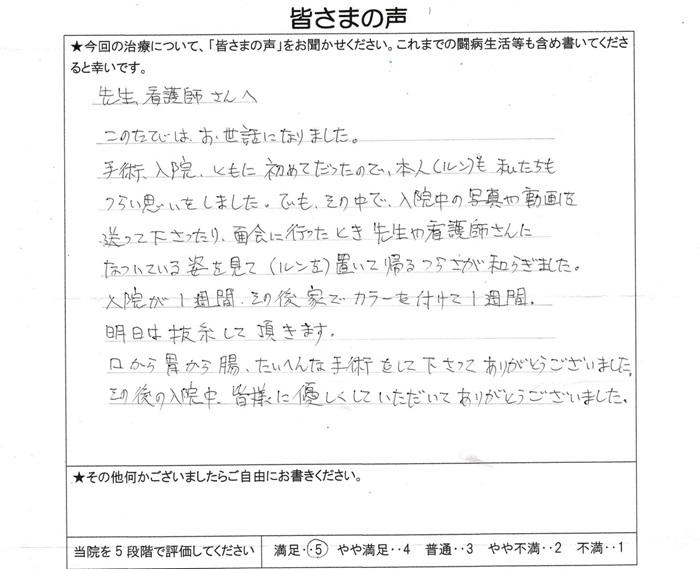 皆さまの声
★今回の治療について、「皆さまの声」をお聞かせください。これまでの闘病生活等も含め書いてくださ
ると幸いです。
先生、看護師さんへ
このたびは、お世話になりました。
手術、入院、ともに初めてだったので、本人(ルン)も私たちも
つらい思いをしました。でも、その中で、入院中の写真や動画を
送って下さったり、面会に行ったとき先生や看護師さんに
なついている姿を見て(ルンを)置いて帰るつらさが和らぎました。
入院が1週間、その後家でカラーを付けて1週間、
明日は抜糸して頂きます。
口から胃から腸、たいへんな手術をして下さってありがとうございました。
その後の入院中、皆様に優しくしていただいてありがとうございました。
★その他何かございましたらご自由にお書きください。
当院を5段階で評価してください 満足‥5 やや満足‥4 普通‥3 やや不満‥2 不満‥1